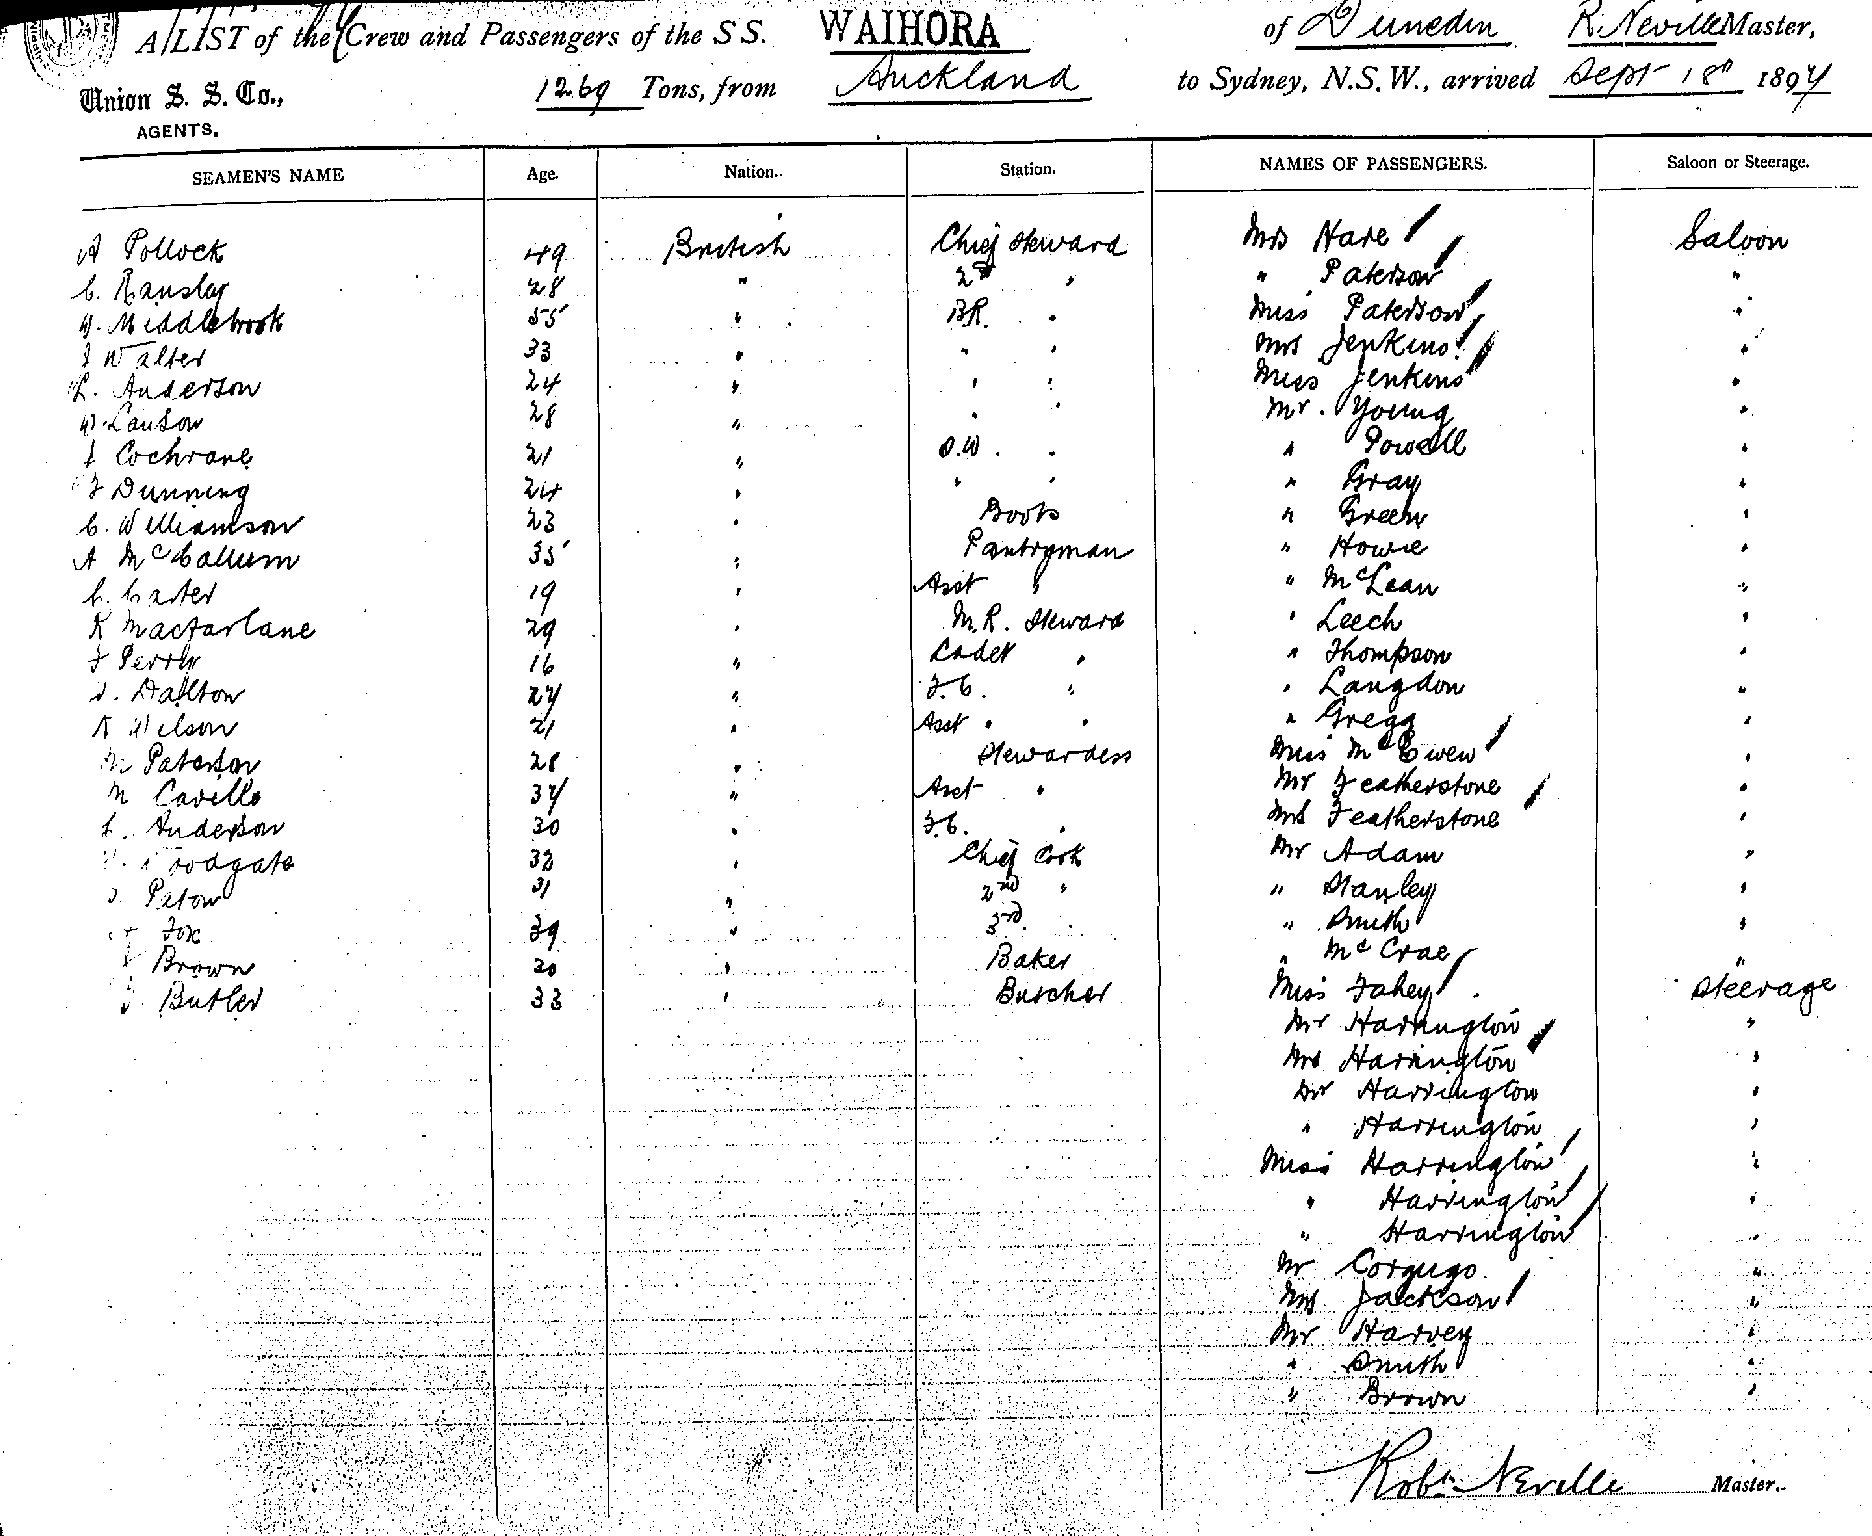 A LIST of the Crew and Passengers of the S S. WAIHORA of Dunedin R. Neville Master,
Union S. S. Co., 1269 Tons, from Auckland to Sydney, N.S.W., arrived Sept 18 1897
AGENTS.
SEAMEN'S NAME Age. Nation. Station. NAMES OF PASSENGERS. Saloon or Steerage.
A Pollock 49 British Chief Steward Mrs Hare Saloon
C. Ransley 28 " 2nd " " Paterson "
W. Middlebrook 55 " B.R. " Miss Paterson "
J Walter 33 " " " Mrs Jenkins "
R. Anderson 24 " " " Miss Jenkins "
W. Lawson 28 " " " Mr. Young "
J Cochrane 21 " O.W. " " Powell "
F Dunning 24 " " " " Gray "
C. Williamson 23 " Boots " Green "
A McCallum 35 " Pantryman " Howie "
C. Carter 19 " Asst " " McLean "
R Macfarlane 29 " M.R. Steward " Leech "
F Perry 16 " Cadet " " Thompson "
Dalton 27 " F.C. " " Langdon "
R Wilson 21 " Asst " " " Gregg "
M Paterson 28 " Stewardess Miss McEwen "
M Cavills 37 " Asst " Mr Featherstone "
L. Anderson 30 " F.C. " Mrs Featherstone "
Woodgate 33 " Chief Cook Mr Adam "
Paton 31 " 2nd " " Stanley "
Fox 39 " 3rd " " Smith "
Brown 30 " Baker " McCrae "
J. Butler 33 " Butcher Miss Fahey Steerage
Mr Harrington "
Mrs Harrington "
Mr Harrington "
" Harrington "
Miss Harrington "
" Harrington "
" Harrington "
Mr Corgugo "
Mrs Jackson "
Mr Harvey "
" Smith "
" Brown "
Robt Neville Master.